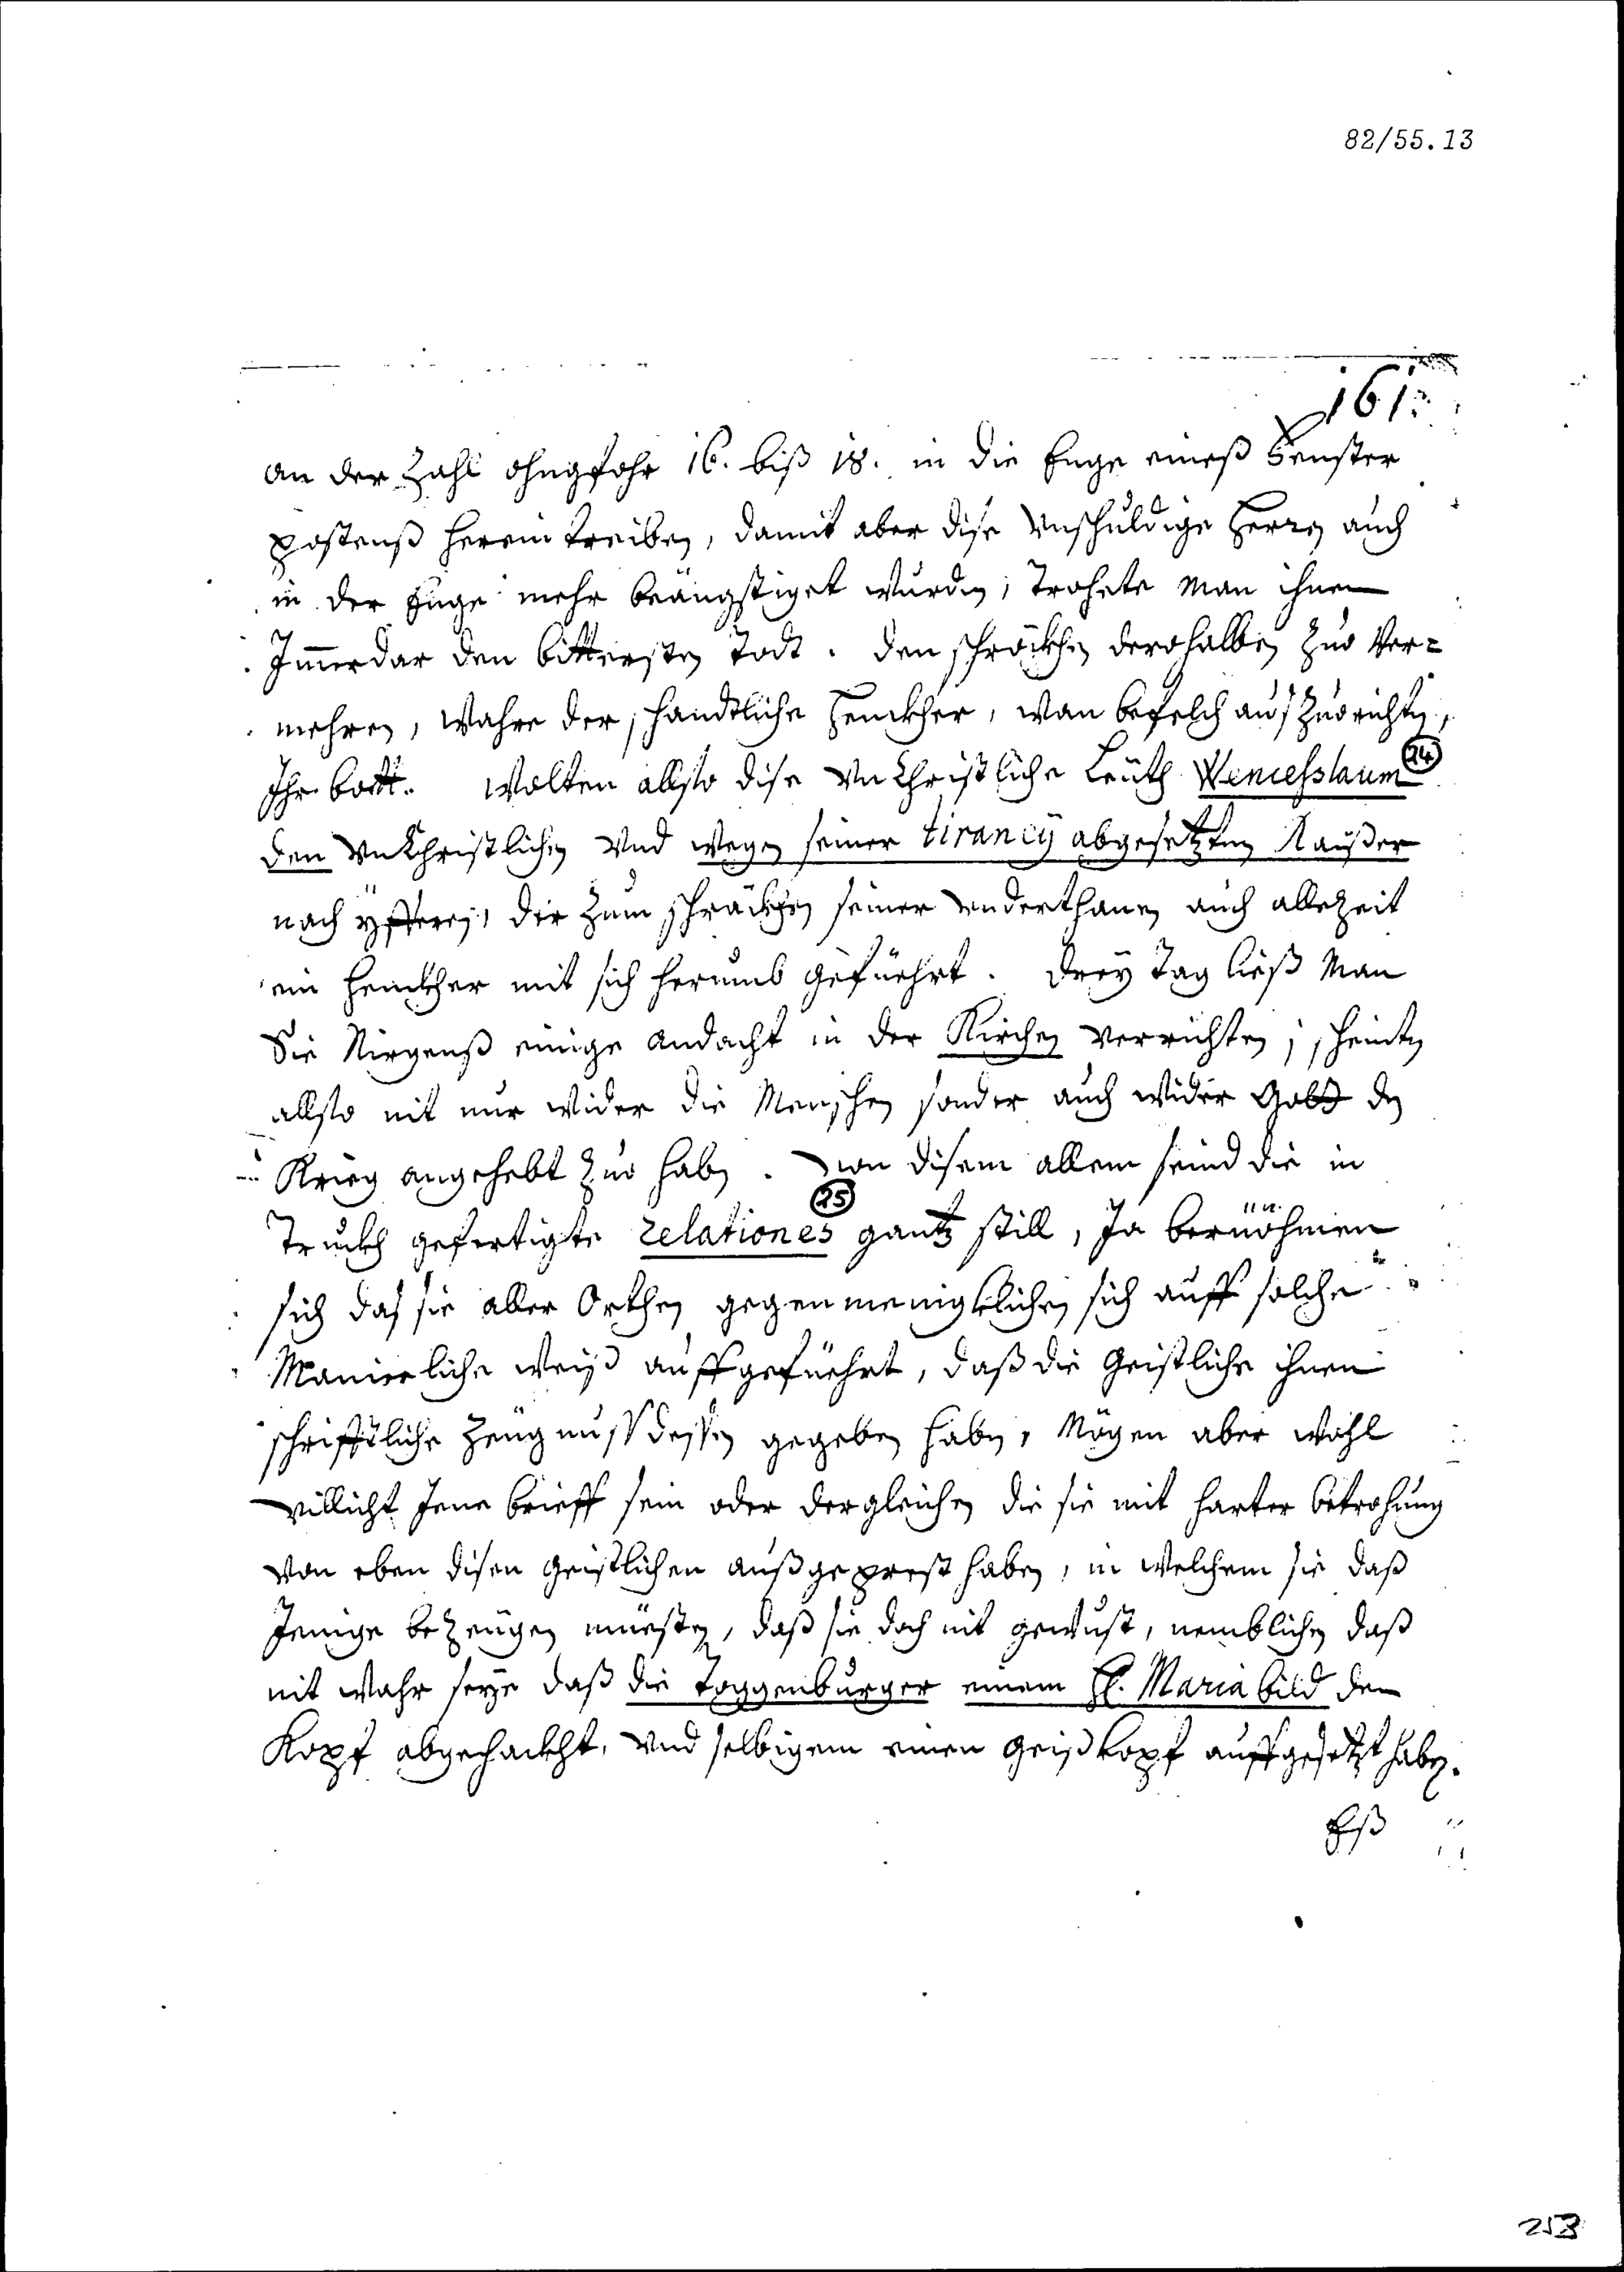 82/55.13
161.
an der Zahl ohngfohr 16. biß 18. in die Enge eineß Fenster
postenß hereintreiben, damit aber dise Vnschuldige Herren auch
in der Enge mehr beängstiget wurden, trohete Man ihnen
Immerdar den bittersten Todt. den schröckhen derohalben zuo Ver=
mehren, wahre der schandtliche Henckher, wan befelch auszuorichten,
Ihr bott. Wolten allso dise Vnchristliche Leüth Wencesslaum 24
den Vnchristlichen Vnd wegen seiner tiraney abgesetzten Kaÿßer
nach ÿfferen, der zum schräckhen seiner vnderthanen auch allezeit
ein henckher mit sich herumb geführt. Drey Tag ließ Man
Sie Nirgenß einige andacht in der Kirchen verrichten; scheinten
allso nit nur wider die Menschen sonder auch wider Gott den
Krieg angehebt zuo haben. Von disem allem seind die in
Truckh gefertigte relationes 25 gantz still, Ja berüöhmen
sich das sie aller Orthen gegen menigkhlichen sich auff solche
Manierliche weiß auffgeführt, daß die Geistliche ihnen
schrifftliche Zeügnuss dessen gegeben haben, Mögen aber wohl
villicht Jene brieff sein oder dergleichen die sie mit harter betrohung
von eben disen Geistlichen außgeprest haben, in welchem sie daß
Jenige bezeügen müesten, daß sie doch nit gewust, nemblichen daß
nit wahr seye daß die Toggenburger einem Hl. Maria bild den
Kopf abgehackht, Vnd selbigem einen Geißkopf auffgesetzt haben.
Eß
253